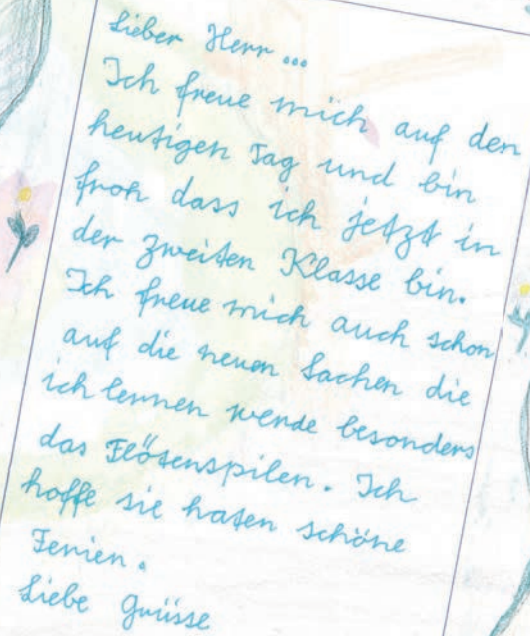 Lieber Herr ...
Ich freue mich auf den
heutigen Tag und bin
froh dass ich jetzt in
der zweiten Klasse bin.
Ich freue mich auch schon
auf die neuen Sachen die
ich lernen werde besonders
das Flötenspilen. Ich
hoffe sie haten schöne
Ferien.
Liebe Grüsse